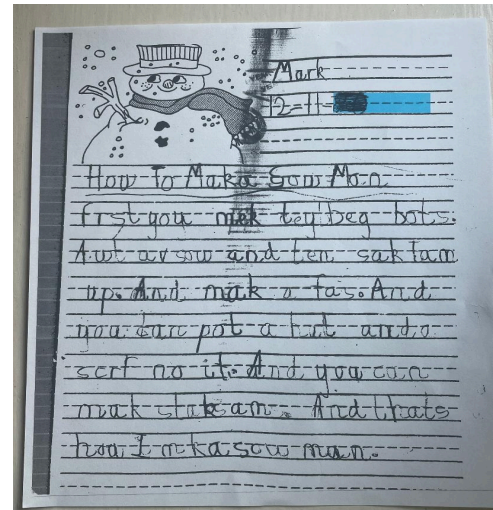 Mark
12-11-
How To Maka Sow Man
frst you mek teylbeg bots.
Awt av sow and ten sak tam
up. And mak a fas. And
you can pot a hut and a
scrf no it. And you can
mak stok am. And thats
how I mka sow man.